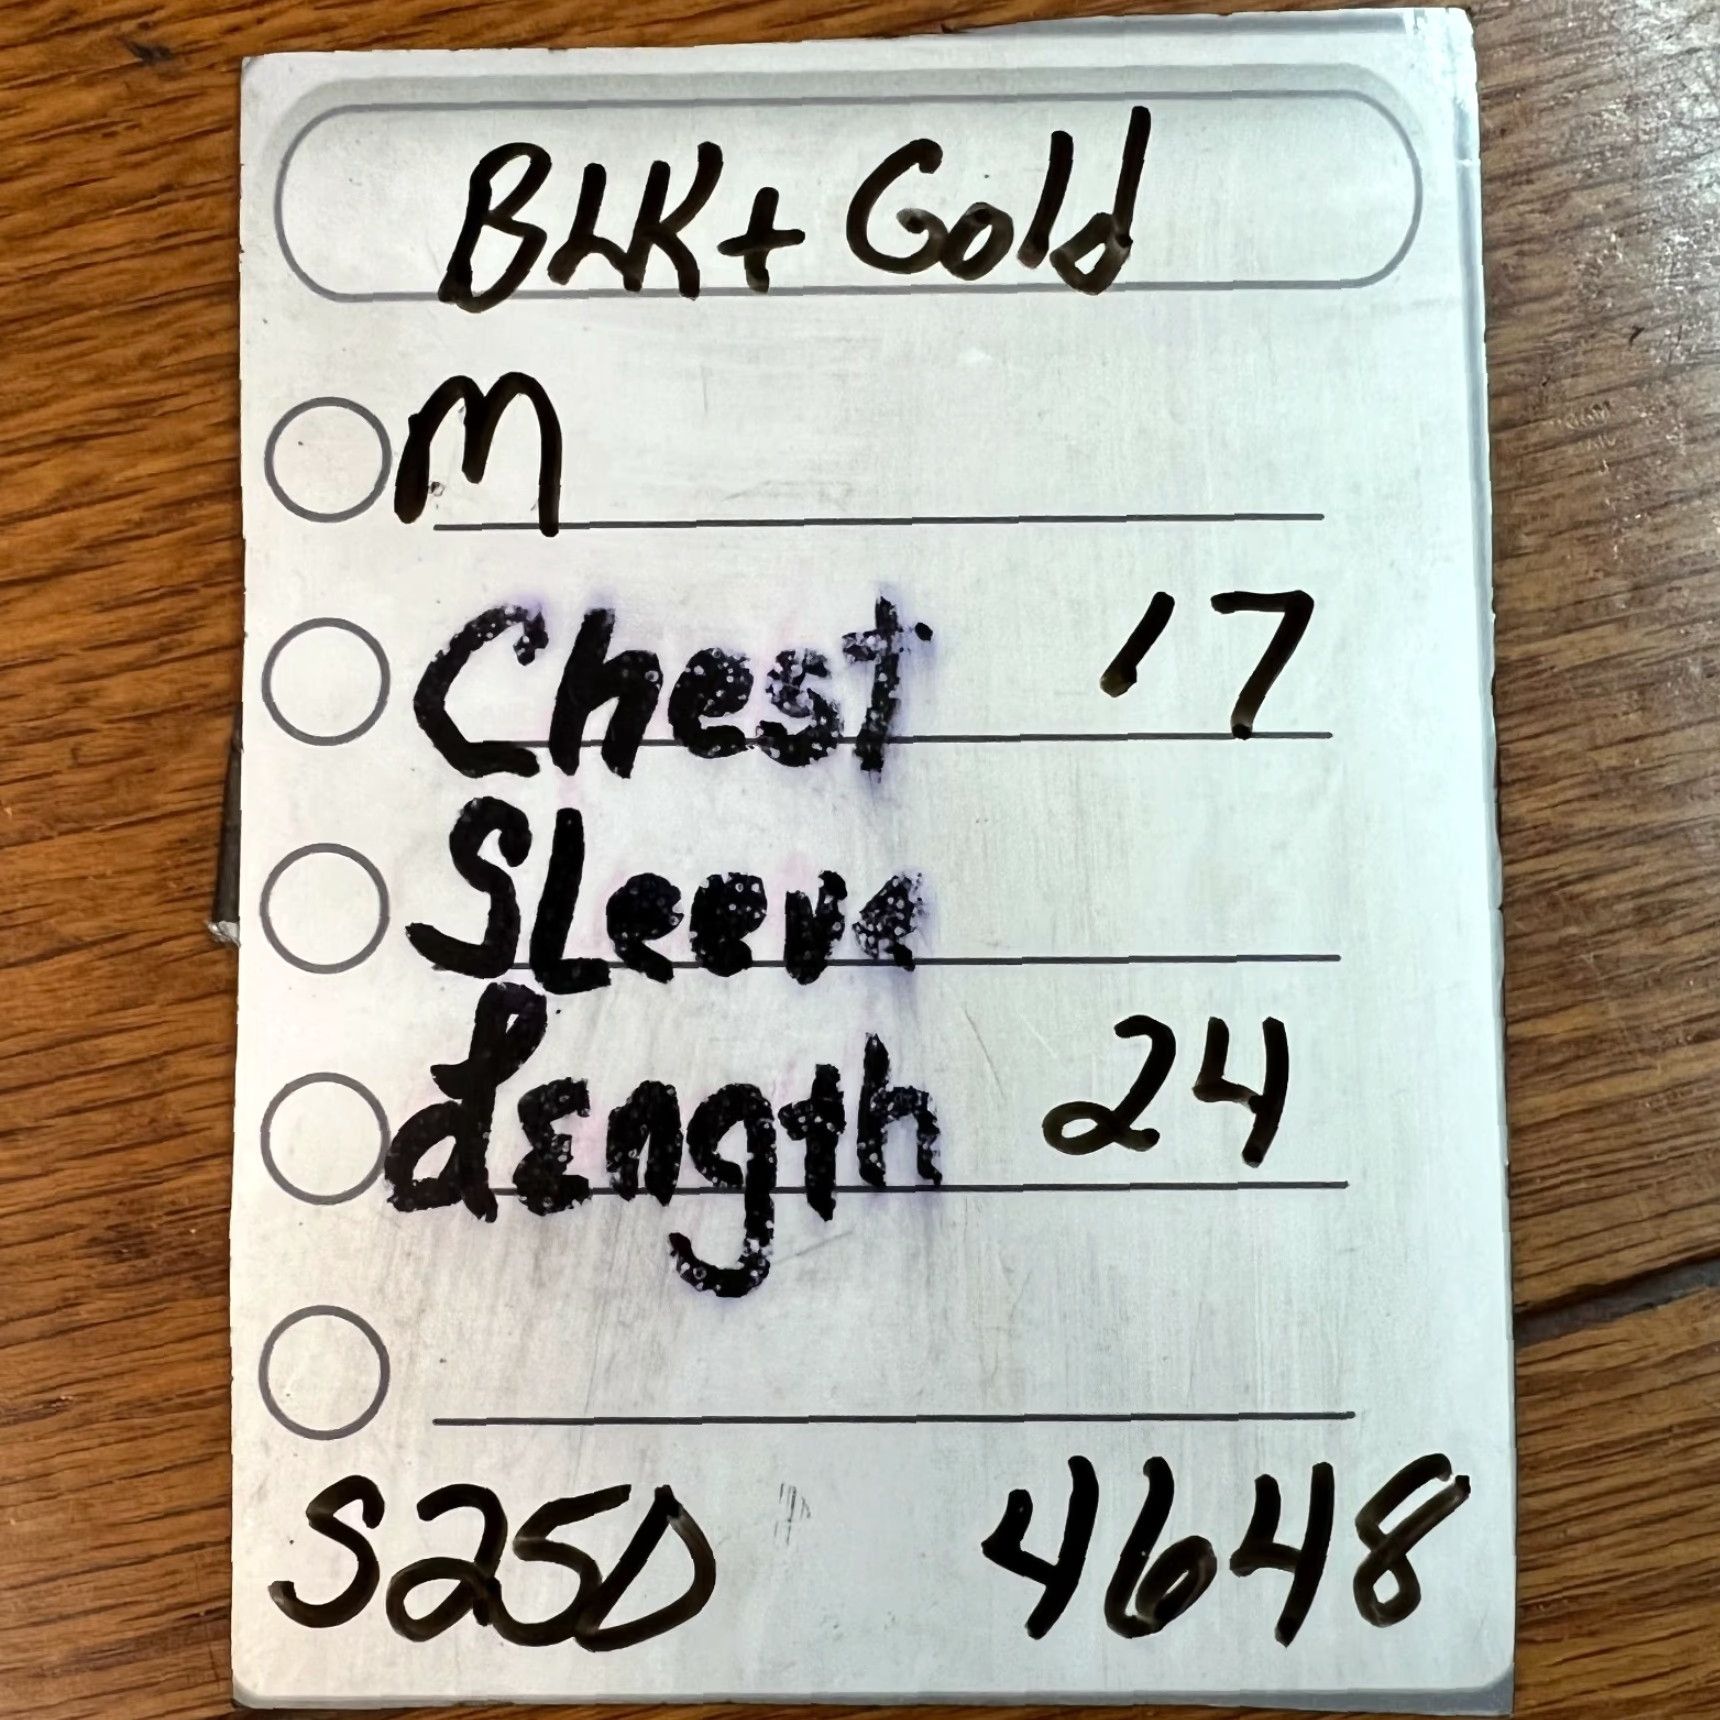 BLK + Gold
M
Chest 17
SLeeve
Length 24
S25D 4648